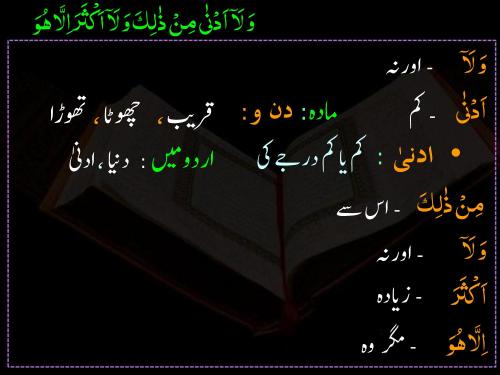 وَلَاۤ اَدْنٰی مِنْ ذٰلِكَ وَلَاۤ اَكْثَرَ اِلَّا هُوَ
وَلَاۤ - اور نہ
اَدْنٰی - کم مادہ: دن و: قریب، چھوٹا، تھوڑا
• ادنیٰ : کم یا کم درجے کی اردو میں : دنیا، ادنیٰ
مِنْ ذٰلِكَ - اس سے
وَلَاۤ - اور نہ
اَكْثَرَ - زیادہ
اِلَّا هُوَ - مگر وہ